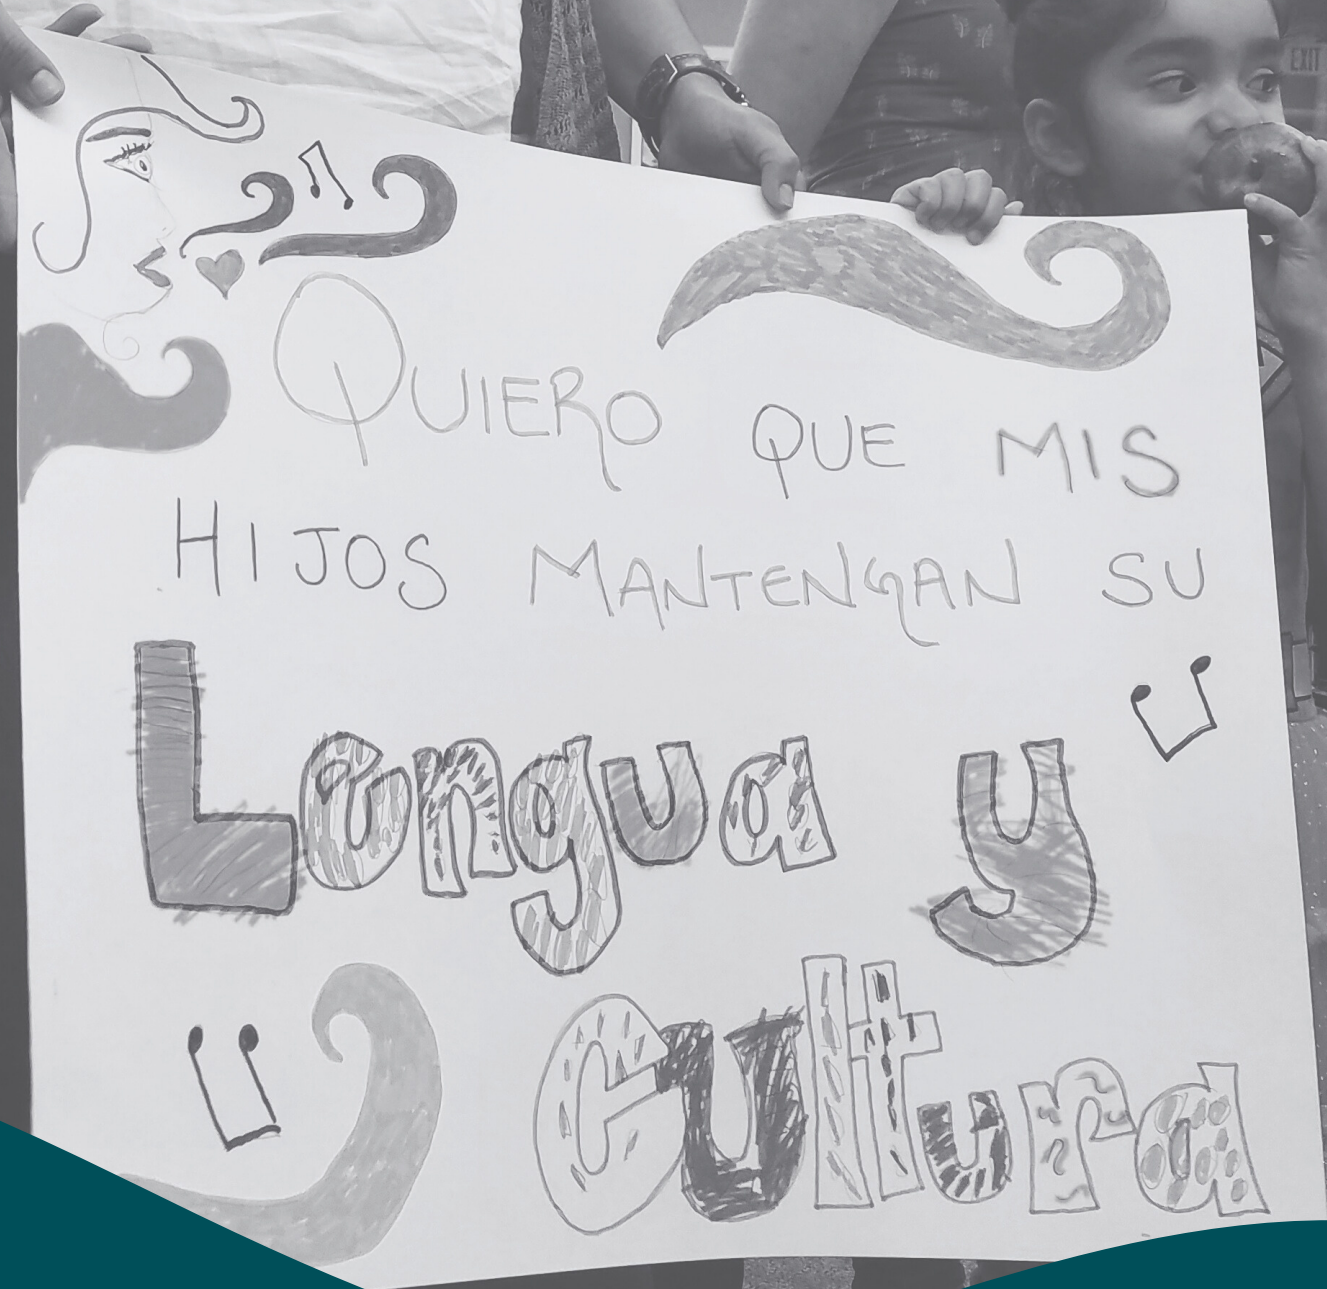 QUIERO QUE MIS
HIJOS MANTENGAN SU
Lengua y
Cultura
EXIT